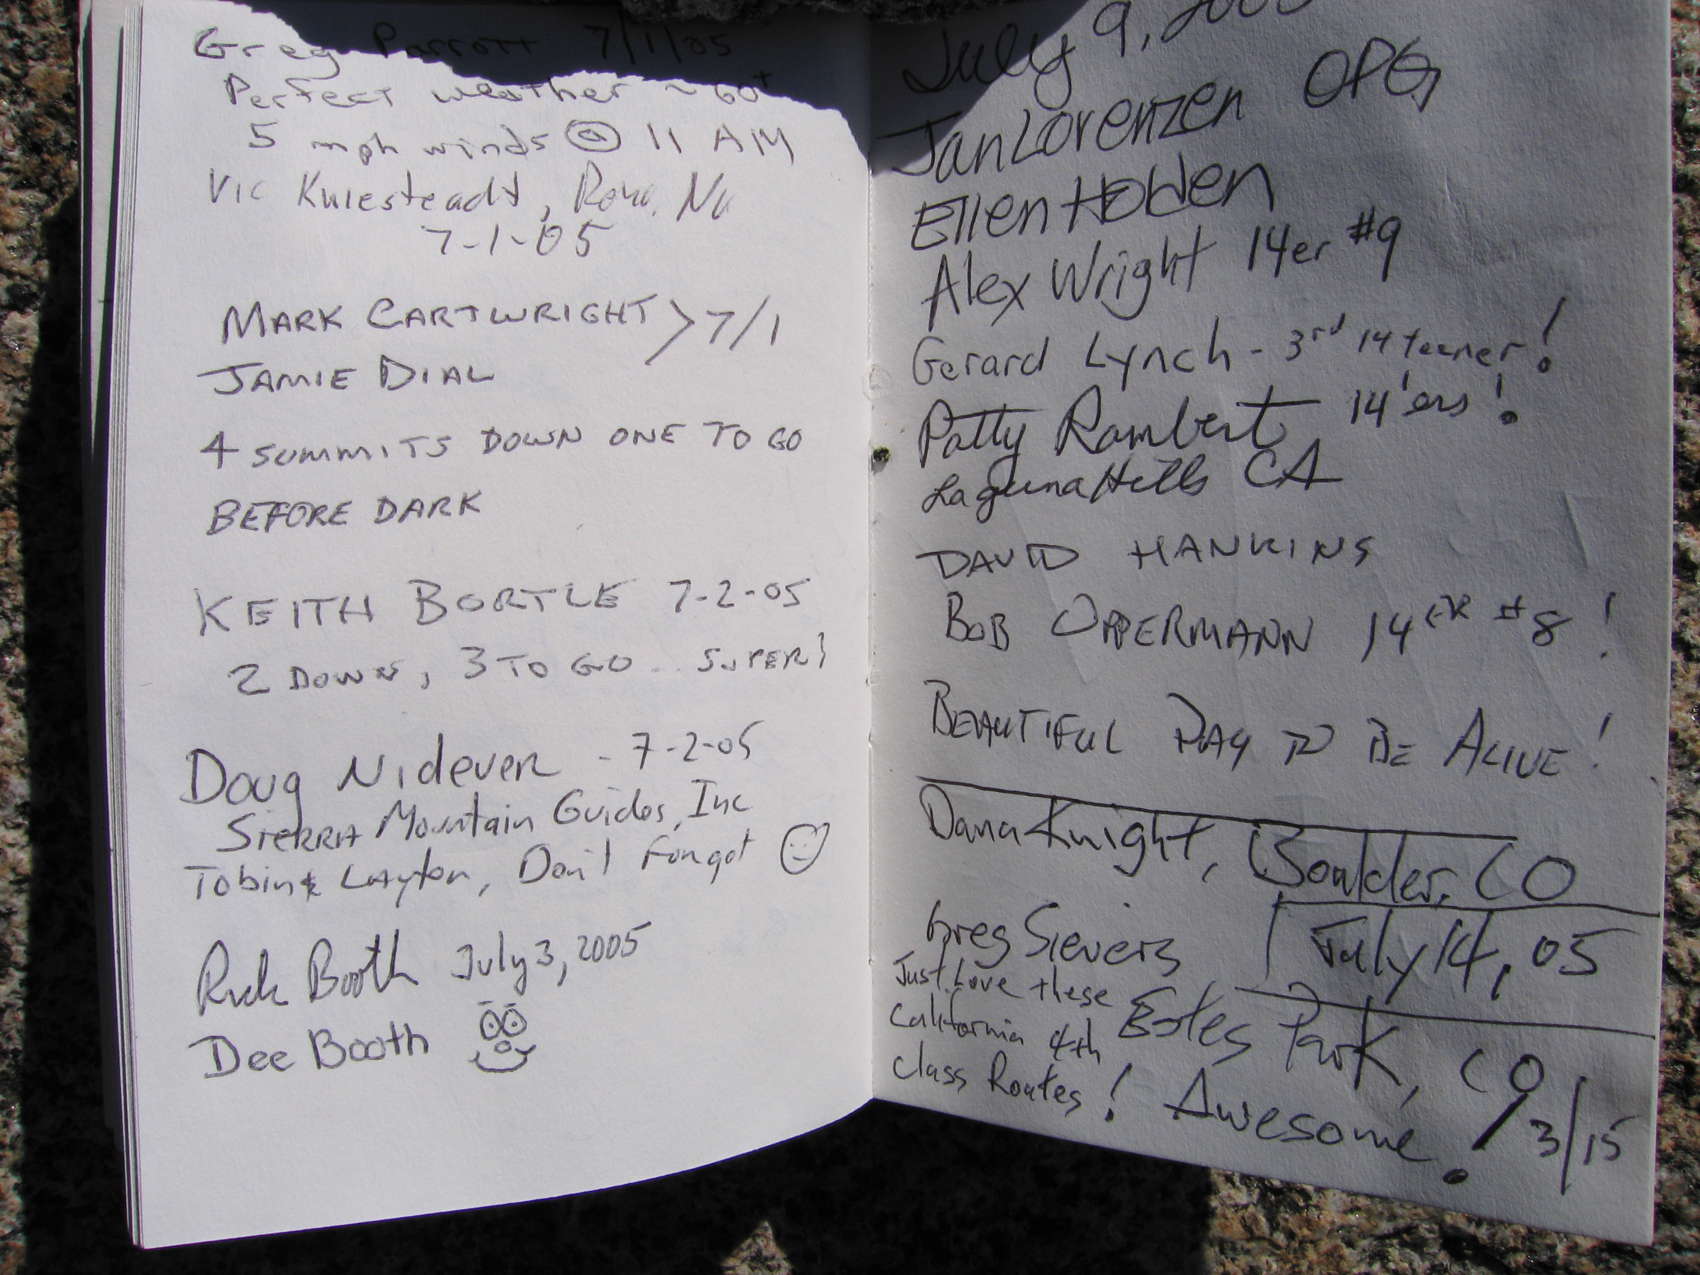 Greg Parrott 7/1/05
Perfect weather ~ 60°
5 mph winds @ 11 AM
Vic , Reno, NV
7-1-05
MARK CARTWRIGHT > 7/1
JAMIE DIAL
4 SUMMITS DOWN ONE TO GO
BEFORE DARK
KEITH BORTLE 7-2-05
2 DOWN, 3 TO GO.. SUPER!
Doug Nidever - 7-2-05
SIERRA Mountain Guides, Inc
Tobin & Layton, Don't Forget
Rick Booth July 3, 2005
Dee Booth
July 9, 2005
Jan Lorenzen OPG
Ellen Holden
Alex Wright 14er #9
Gerard Lynch - 3rd 14teener!
Patty Rambert 14'ers!
Laguna Hills CA
DAVID HANKINS
BOB OPPERMANN 14ER #8!
BEAUTIFUL DAY TO BE ALIVE!
Dana Knight, Boulder, CO
July 14, 05
Greg Sievers
Estes Park, CO
Just Love these
California 4th
Class Routes! Awesome!
13/15